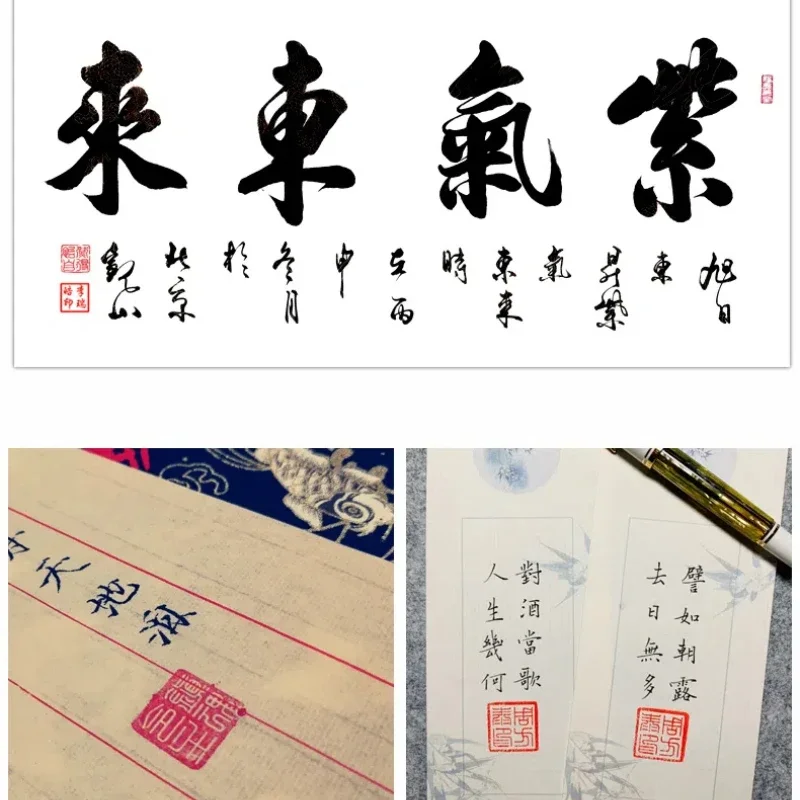 紫氣東來
旭日
東
昇紫
氣
東來
時
在丙
申
冬月
於
北京
觀山
天地
對酒當歌
人生幾何
譬如朝露
去日無多